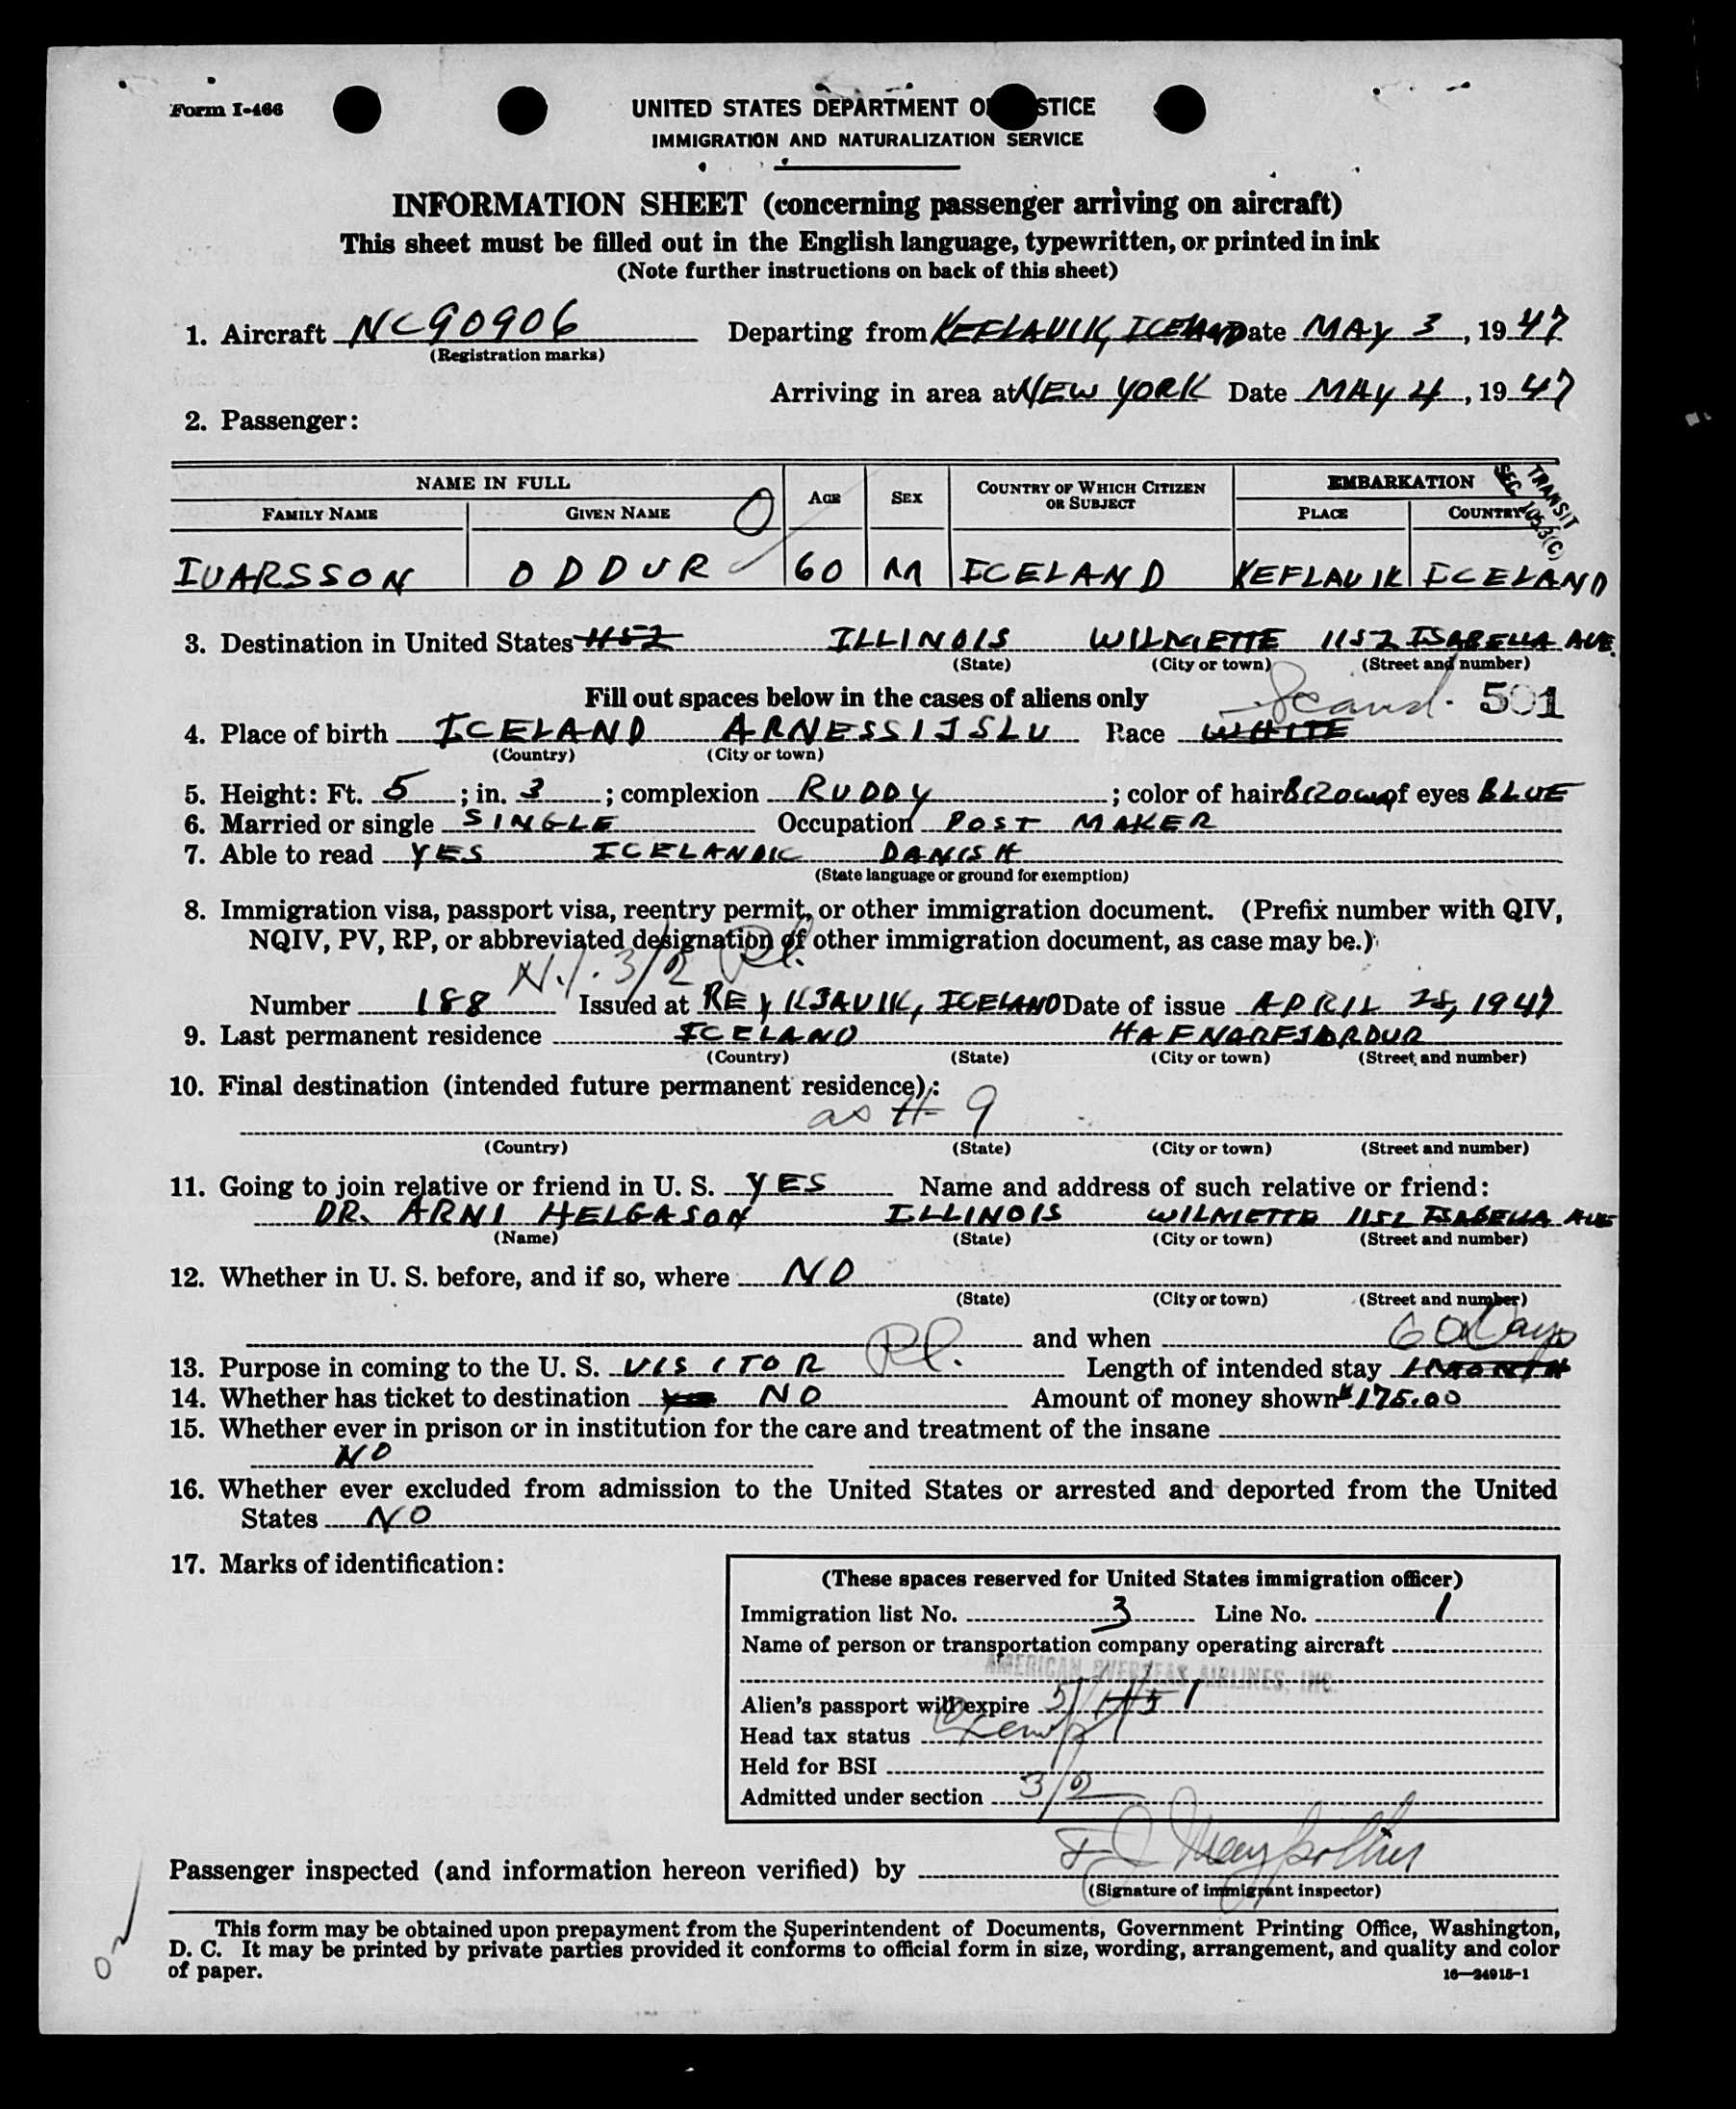 Form I-466
UNITED STATES DEPARTMENT O STICE
IMMIGRATION AND NATURALIZATION SERVICE
INFORMATION SHEET (concerning passenger arriving on aircraft)
This sheet must be filled out in the English language, typewritten, or printed in ink
(Note further instructions on back of this sheet)
1. Aircraft NC90906 Departing from KEFLAVIK, ICELAND Date MAY 3, 1947
(Registration marks)
Arriving in area at NEW YORK Date MAY 4, 1947
2. Passenger:
NAME IN FULL AGE SEX COUNTRY OF WHICH CITIZEN OR SUBJECT EMBARKATION
FAMILY NAME GIVEN NAME PLACE COUNTRY
TRANSIT
SEC. 105.3(C)
IVARSSON ODDUR 60 M ICELAND KEFLAVIK ICELAND
3. Destination in United States 1152 ILLINOIS WILMETTE 1152 ISABELLA AVE.
(State) (City or town) (Street and number)
Fill out spaces below in the cases of aliens only Scand. 501
4. Place of birth ICELAND ARNESSIJSLU Race WHITE
(Country) (City or town)
5. Height: Ft. 5; in. 3; complexion RUDDY; color of hair BROWN of eyes BLUE
6. Married or single SINGLE Occupation POST MAKER
7. Able to read YES ICELANDIC DANISH
(State language or ground for exemption)
8. Immigration visa, passport visa, reentry permit, or other immigration document. (Prefix number with QIV,
NQIV, PV, RP, or abbreviated designation of other immigration document, as case may be.)
N.I. 3/2 Pl.
Number 188 Issued at REYKJAVIK, ICELAND Date of issue APRIL 28, 1947
9. Last permanent residence ICELAND HAFNARFJORDUR
(Country) (State) (City or town) (Street and number)
10. Final destination (intended future permanent residence):
as # 9
(Country) (State) (City or town) (Street and number)
11. Going to join relative or friend in U. S. YES Name and address of such relative or friend:
DR. ARNI HELGASON ILLINOIS WILMETTE 1152 ISABELLA AVE
(Name) (State) (City or town) (Street and number)
12. Whether in U. S. before, and if so, where NO
(State) (City or town) (Street and number)
and when
60 Days
13. Purpose in coming to the U. S. VISITOR Pl. Length of intended stay 1 MONTH
14. Whether has ticket to destination YES NO Amount of money shown $175.00
15. Whether ever in prison or in institution for the care and treatment of the insane
NO
16. Whether ever excluded from admission to the United States or arrested and deported from the United
States NO
17. Marks of identification:
(These spaces reserved for United States immigration officer)
Immigration list No. 3 Line No. 1
Name of person or transportation company operating aircraft
AMERICAN OVERSEAS AIRLINES, INC.
Alien's passport will expire
Head tax status Exempt
Held for BSI
Admitted under section 3/2
Passenger inspected (and information hereon verified) by
(Signature of immigrant inspector)
This form may be obtained upon prepayment from the Superintendent of Documents, Government Printing Office, Washington,
D. C. It may be printed by private parties provided it conforms to official form in size, wording, arrangement, and quality and color
of paper.
16—24915-1